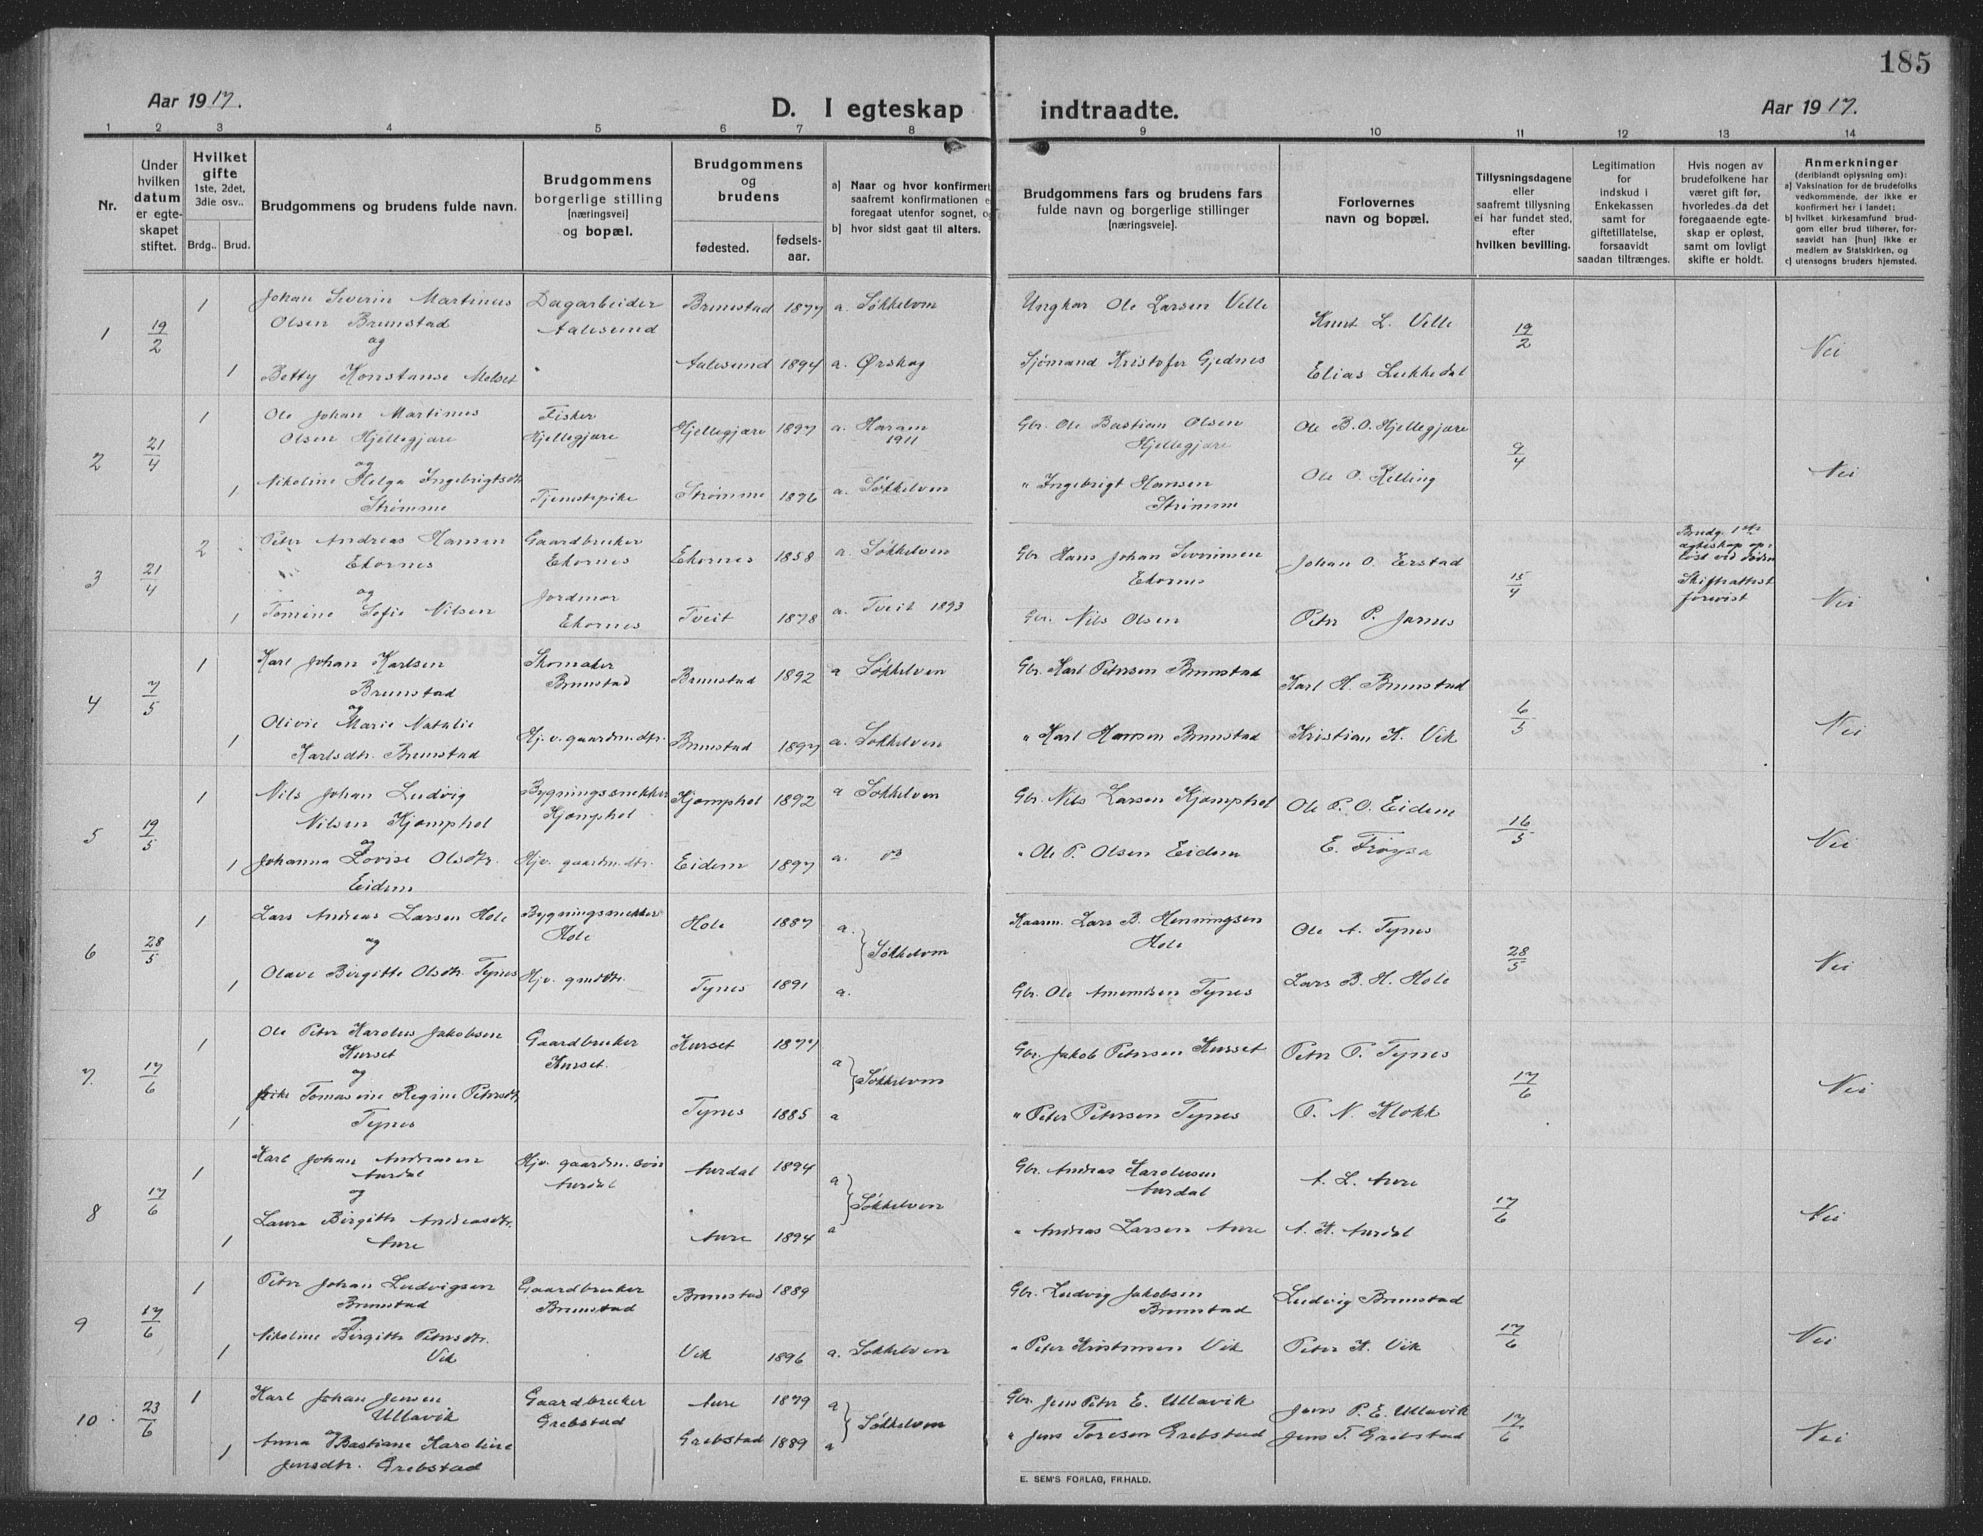 185
Aar 1917.
D. I egteskap indtraadte.
Aar 1917.
1 2 3 4 5 6 7 8 9 10 11 12 13 14
Nr.
Under hvilken datum er egteskapet stiftet.
Hvilket gifte 1ste, 2det, 3die osv..
Brdg.. Brud.
Brudgommens og brudens fulde navn.
Brudgommens borgerlige stilling [næringsvei] og bopæl.
Brudgommens og brudens
fødested. fødselsaar.
a) Naar og hvor konfirmert saafremt konfirmationen e foregaat utenfor sognet, o
b) hvor sidst gaat til alters.
Brudgommens fars og brudens fars fulde navn og borgerlige stillinger [næringsveie].
Forlovernes navn og bopæl.
Tillysningsdagene eller saafremt tillysning ei har fundet sted, efter hvilken bevilling.
Legitimation for indskud i Enkekassen samt for giftetillatelse, forsaavidt saadan tiltrænges.
Hvis nogen av brudefolkene har været gift før, hvorledes da det foregaaende egteskap er opløst, samt om lovligt skifte er holdt.
Anmerkninger (deriblandt oplysning om): a) Vaksination for de brudefolks vedkommende, der ikke er konfirmert her i landet; b) hvilket kirkesamfund brudgom eller brud tilhører, forsaavidt han [hun] ikke er medlem av Statskirken, og c) utensogns bruders hjemsted.
1 19/2 1 Johan Severin Martinus Dagarbeider Brunstad 1877 a. Søkkelven Ungkar Ole Larsen Velle Knut L. Velle 19/2 Nei
Olsen Brunstad Aalesund
og
1 Betty Konstanse Melset Aalesund 1894 a. Ørskog Sjømand Kristofer Gjednes Elias Lukkedal
2 21/4 1 Ole Johan Martinus Fisker Hjellegjære 1897 a. Haram 1911 Gbr. Ole Bastian Olsen Ole B. O. Hjellegjære 9/4 Nei
Olsen Hjellegjære Hjellegjære Hjellegjære
og
1 Nikoline Helga Ingebrigtsdtr. Tjenestepike Strømme 1896 a. Søkkelven " Ingebrigt Hansen Ole O. Relling
Strømme Strømme
3 21/4 2 Peter Andreas Hansen Gaardbruker Ekornes 1858 a. Søkkelven Gbr Hans Johan Severinsen Johan O. Erstad 15/4 Brudg. 1ste egteskap opløst ved døden Skifteattest forevist Nei
Ekornes Ekornes Ekornes
og
1 Tomine Sofie Nilsen Jordmor Ekornes Tveit 1878 a. Tveit 1893 Gbr. Nils Olsen Peter P. Jarnes
4 7/5 1 Karl Johan Karlsen Skomaker Brunstad 1892 a Søkkelven Gbr Karl Petersen Brunstad Karl H. Brunstad 6/5 Nei
Brunstad Brunstad
og
1 Olivie Marie Natalie Hj. v. gaardm. dtr. Brunstad 1897 a. Søkkelven " Karl Hansen Brunstad Kristian K. Vik
Karlsdtr. Brunstad
5 19/5 1 Nils Johan Ludvig Bygningssnekker Kjemphol 1892 a Søkkelven Gbr. Nils Larsen Kjemphol Ole P. O. Eidem 16/5 Nei
Nilsen Kjemphol Kjemphol
og
1 Johanna Lovise Olsdtr. Hjv. gaardm. dtr. Eidem 1897 a. " Ole P. Olsen Eidem E. Frøysa
Eidem
6 28/5 1 Lars Andreas Larsen Hole Bygningssnekker Hole 1887 a. Søkkelven Kaarm. Lars B. Henningsen Ole A. Tynes 28/5 Nei
og Hole Hole
1 Olave Birgitte Olsdtr. Tynes Hjv. gmdtr. Tynes 1891 a. Gbr. Ole Amundsen Tynes Lars B. H. Hole
7. 17/6 1 Ole Peter Karolus Jakobsen Gaardbruker Kurset 1877 a Søkkelven Gbr. Jakob Petersen Kurset Peter P. Tynes 17/6 Nei
Kurset Kurset.
og
1 Tomasine Regine Petersdtr. Tynes 1885 a " Peter Petersen Tynes P. N. Klokk
Tynes
8 17/6 1 Karl Johan Andreassen Hjv. gaardm. søn Aurdal 1894 a Søkkelven Gbr. Andreas Karolusen A. L. Aure 17/6 Nei
Aurdal Aurdal Aurdal
og
1 Laura Birgitte Andreasdtr. Aure 1894 a " Andreas Larsen Aure A. K. Aurdal
Aure
9 17/6 1 Peter Johan Ludvigsen Gaardbruker Brunstad 1889 Gbr. Ludvig Jakobsen Ludvig Brunstad 17/6 Nei
Brunstad Brunstad Brunstad
og
1 Nikoline Birgitte Petersdtr. Vik 1896 a. Søkkelven " Peter Kristensen Vik Peter K. Vik
Vik
10. 23/6 1 Karl Johan Jensen Gaardbruker Aure 1879 a Søkkelven Gbr. Jens Peter E. Ullavik Jens P. E. Ullavik 17/6 Nei
Ullavik Grebstad
og
1 Anna Bastiane Karoline Grebstad 1889 a " Jens Toresen Grebstad Jens T. Grebstad
Jensdtr. Grebstad
E. SEM'S FORLAG, FR.HALD.